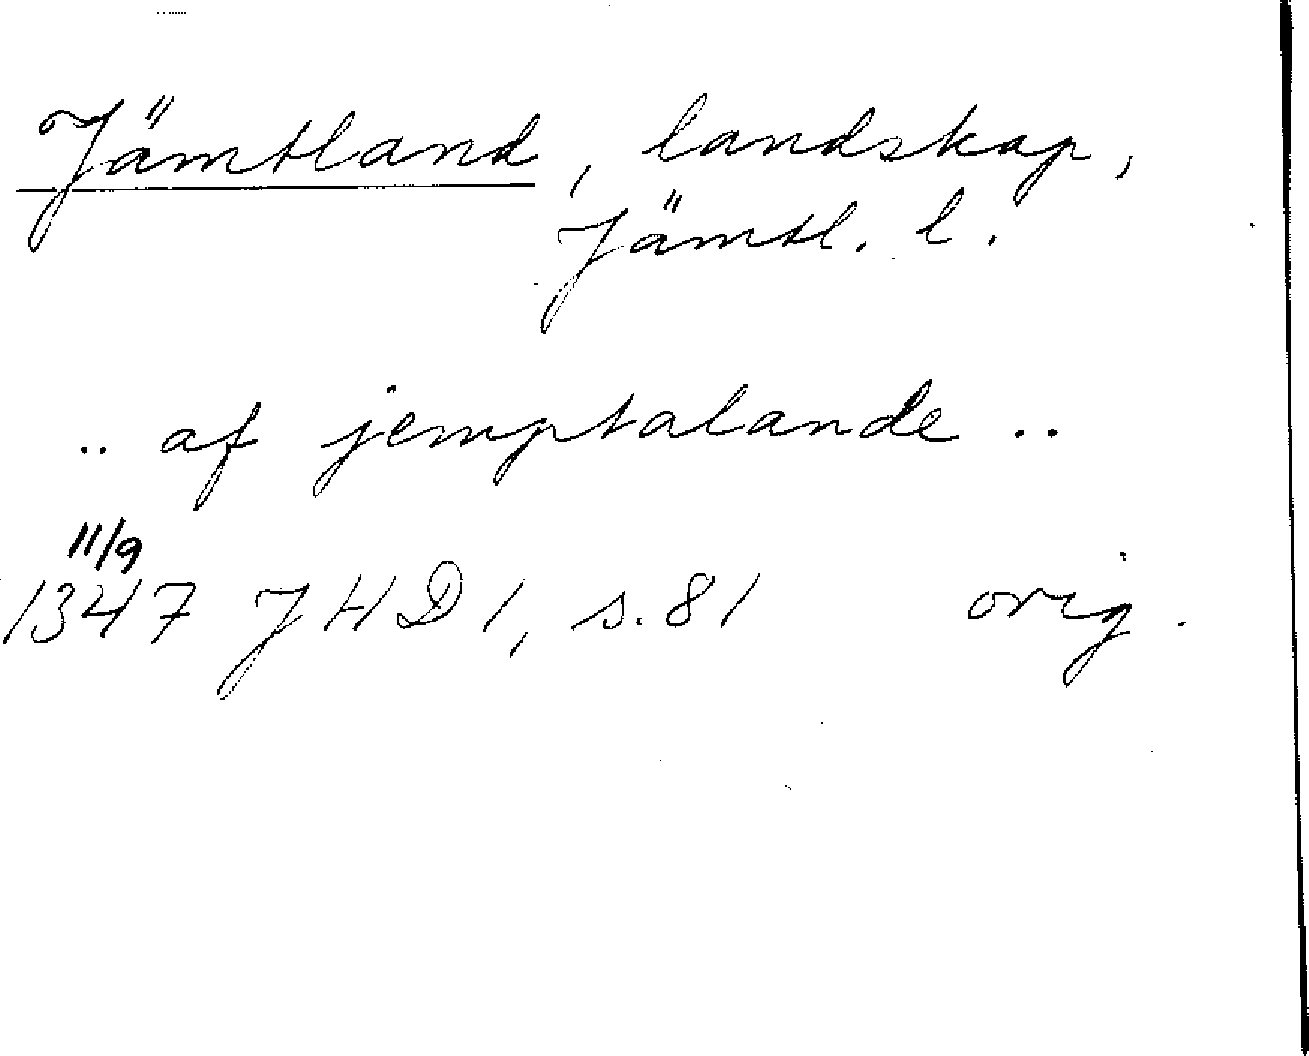 Jämtland, landskap,
Jämtl. l.
.. af jemptalande ..
11/9
1347 JHD 1, s. 81 orig.